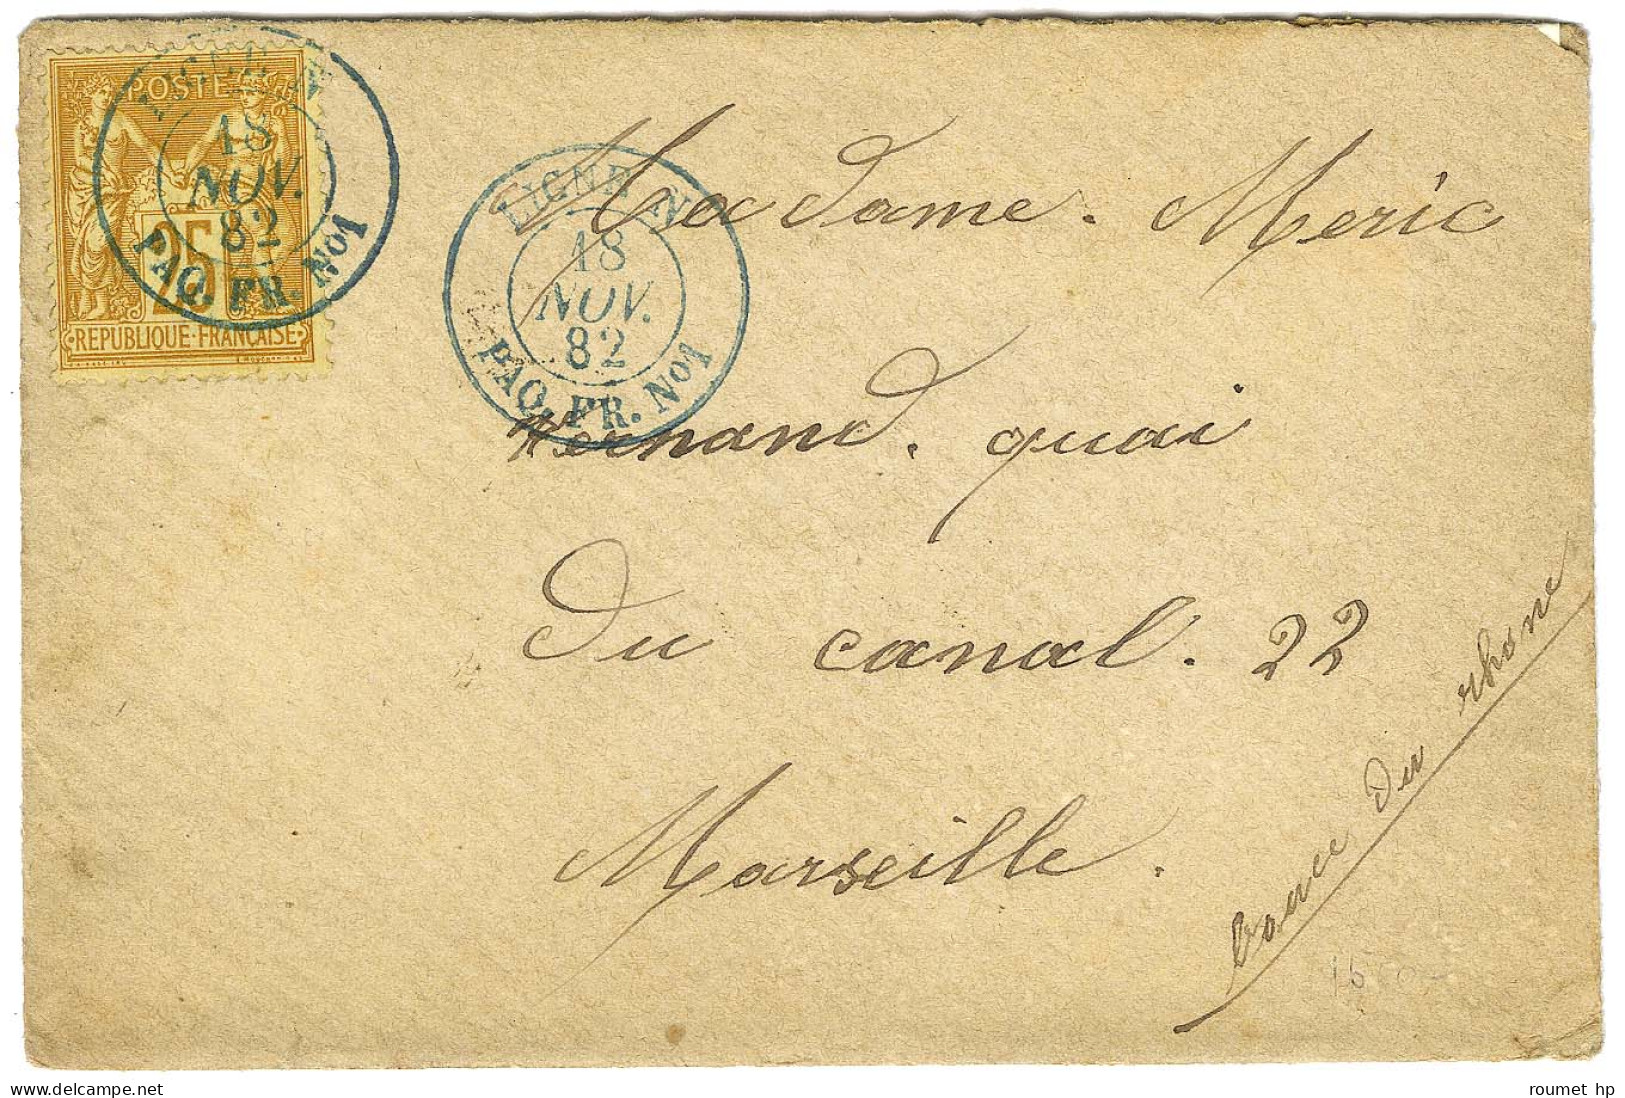 POSTE
25
REPUBLIQUE·FRANÇAISE
LIGNE N
18
NOV.
82
PAQ. FR. No1
LIGNE N
18
NOV.
82
PAQ. FR. No1
Madame. Meric
Vernand. quai
du canal. 22
Marseille.
bouce du rhone
roumet hp